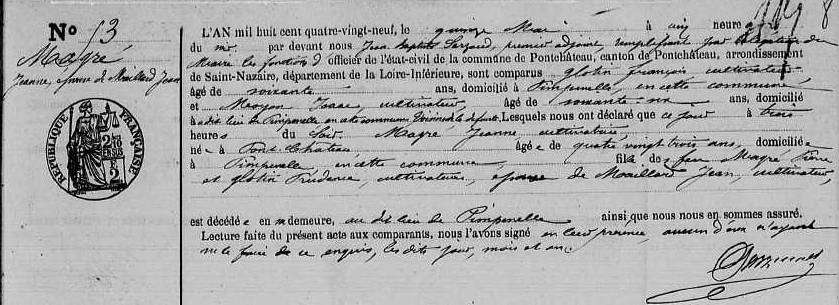 No 13
Magré
Jeanne, épouse de Maillard Jean
RÉPUBLIQUE FRANÇAISE
L'AN mil huit cent quatre-vingt-neuf, le quinze Mai à cinq heures
du soir par devant nous Jean Baptiste premier adjoint, remplissant par délégation du
Maire les fonctions d'officier de l'état-civil de la commune de Pontchâteau, canton de Pontchâteau, arrondissement
de Saint-Nazaire, département de la Loire-Inférieure, sont comparus glotin françois cultivateur
âgé de soixante ans, domicilié à Pimpenelle, en cette commune
et Moyon Isaac, cultivateur, âgé de soixante-un ans, domicilié
à dit lieu de Pimpenelle en cette commune Lesquels nous ont déclaré que ce jour à trois
heures du soir Magré Jeanne cultivatrice,
née à Pont-Château, âgée de quatre vingt trois ans, domiciliée
à Pimpenelle en cette commune, fille de feu Magré Pierre
et glotin Prudence, cultivateurs, épouse de Maillard Jean, cultivateur,
est décédée en sa demeure, au dit lieu de Pimpenelle ainsi que nous nous en sommes assuré.
Lecture faite du présent acte aux comparants, nous l'avons signé en leur présence, aucun d'eux n'ayant
pu le faire de ce enquis, les dits jour, mois et an.